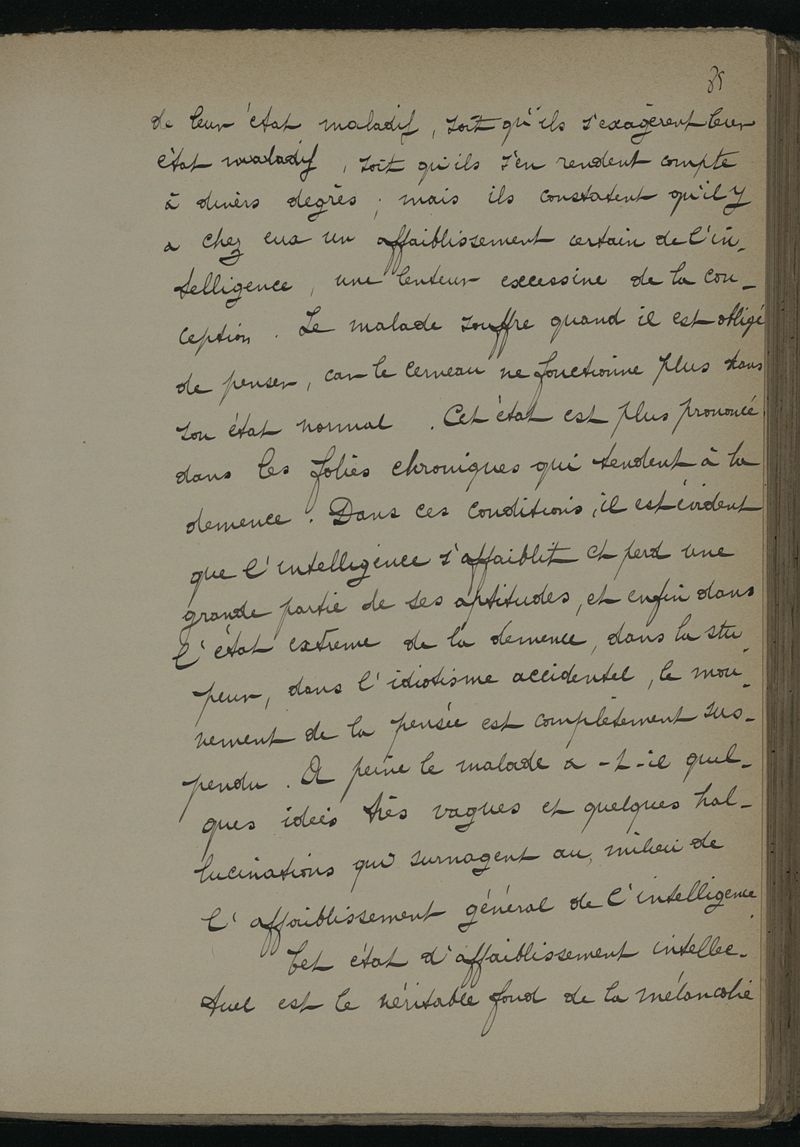 35
de leur état maladif, soit qu'ils s'exagèrent leur
état maladif, soit qu'ils s'en rendent compte
à divers degrés; mais ils constatent qu'il y
a chez eux un affaiblissement certain de l'in-
telligence, une lenteur excessive de la con-
ception. Le malade souffre quand il est obligé
de penser, car le cerveau ne fonctionne plus dans
son état normal. Cet état est plus prononcé
dans les folies chroniques qui tendent à la
demence. Dans ces conditions, il est évident
que l'intelligence s'affaiblit et perd une
grande partie de ses aptitudes, et enfin dans
l'état extreme de la demence, dans la stu-
peur, dans l'idiotisme accidentel, le mou-
vement de la pensée est complètement sus-
pendu. A peine le malade a-t-il quel-
ques idées très vagues et quelques hal-
lucinations qui surnagent au milieu de
l'affaiblissement général de l'intelligence.
Cet état d'affaiblissement intellec-
tuel est le véritable fond de la mélancolie